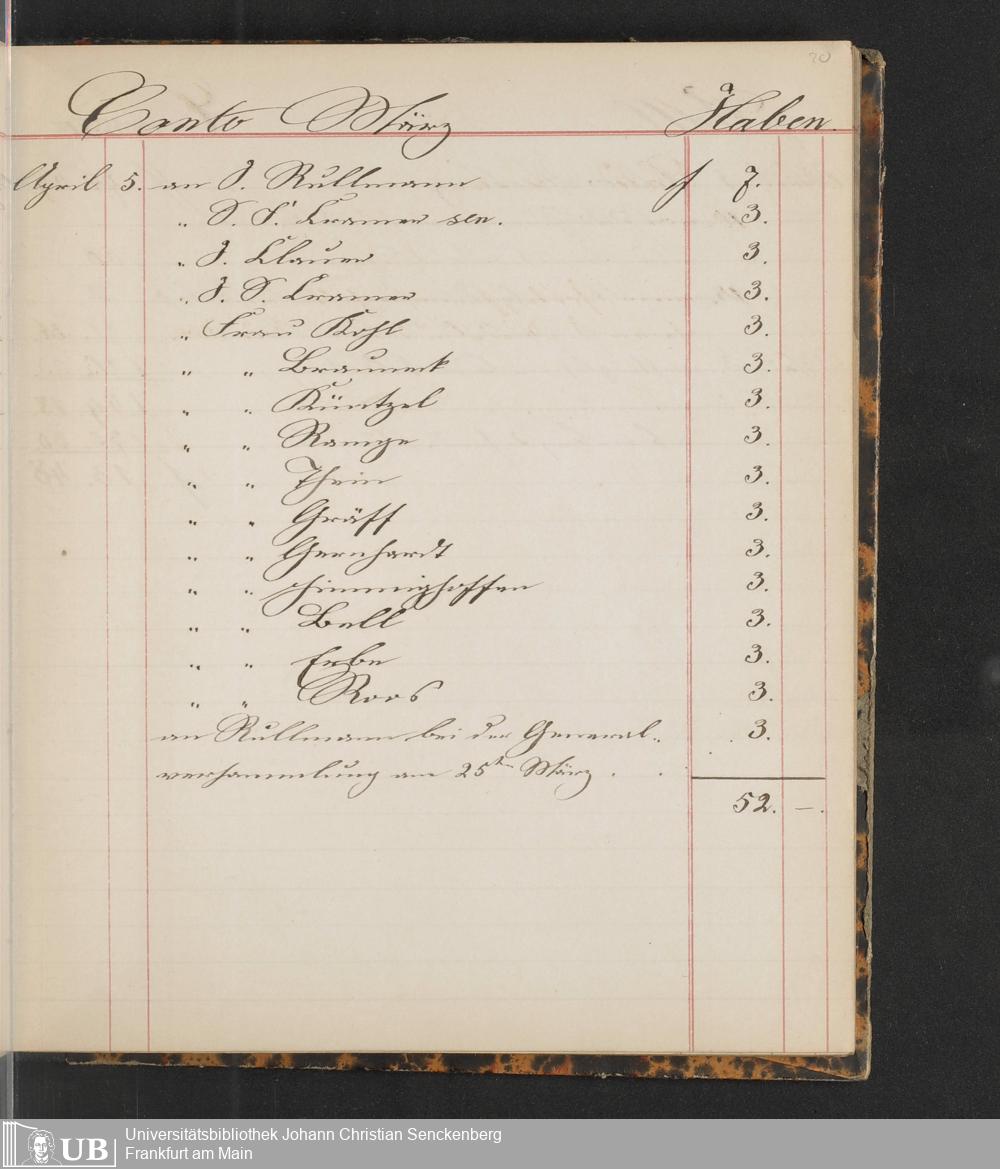 20
Conto März Haben.
April 5. an J. Rullmann f 7.
" S. F. Cramer sen. 3.
" J. Clauer 3.
" J. S. Cramer 3.
" Frau Kohl 3.
" " Brauneck 3.
" " Küntzel 3.
" " Ramge 3.
" " Thein 3.
" " Gräff 3.
" " Gernhardt 3.
" " 3.
" " Bell 3.
" " Erbe 3.
" " Roos 3.
an Rullmann bei der General- 3.
versammlung am 25ten März . .
52. —.
UB
Universitätsbibliothek Johann Christian Senckenberg
Frankfurt am Main